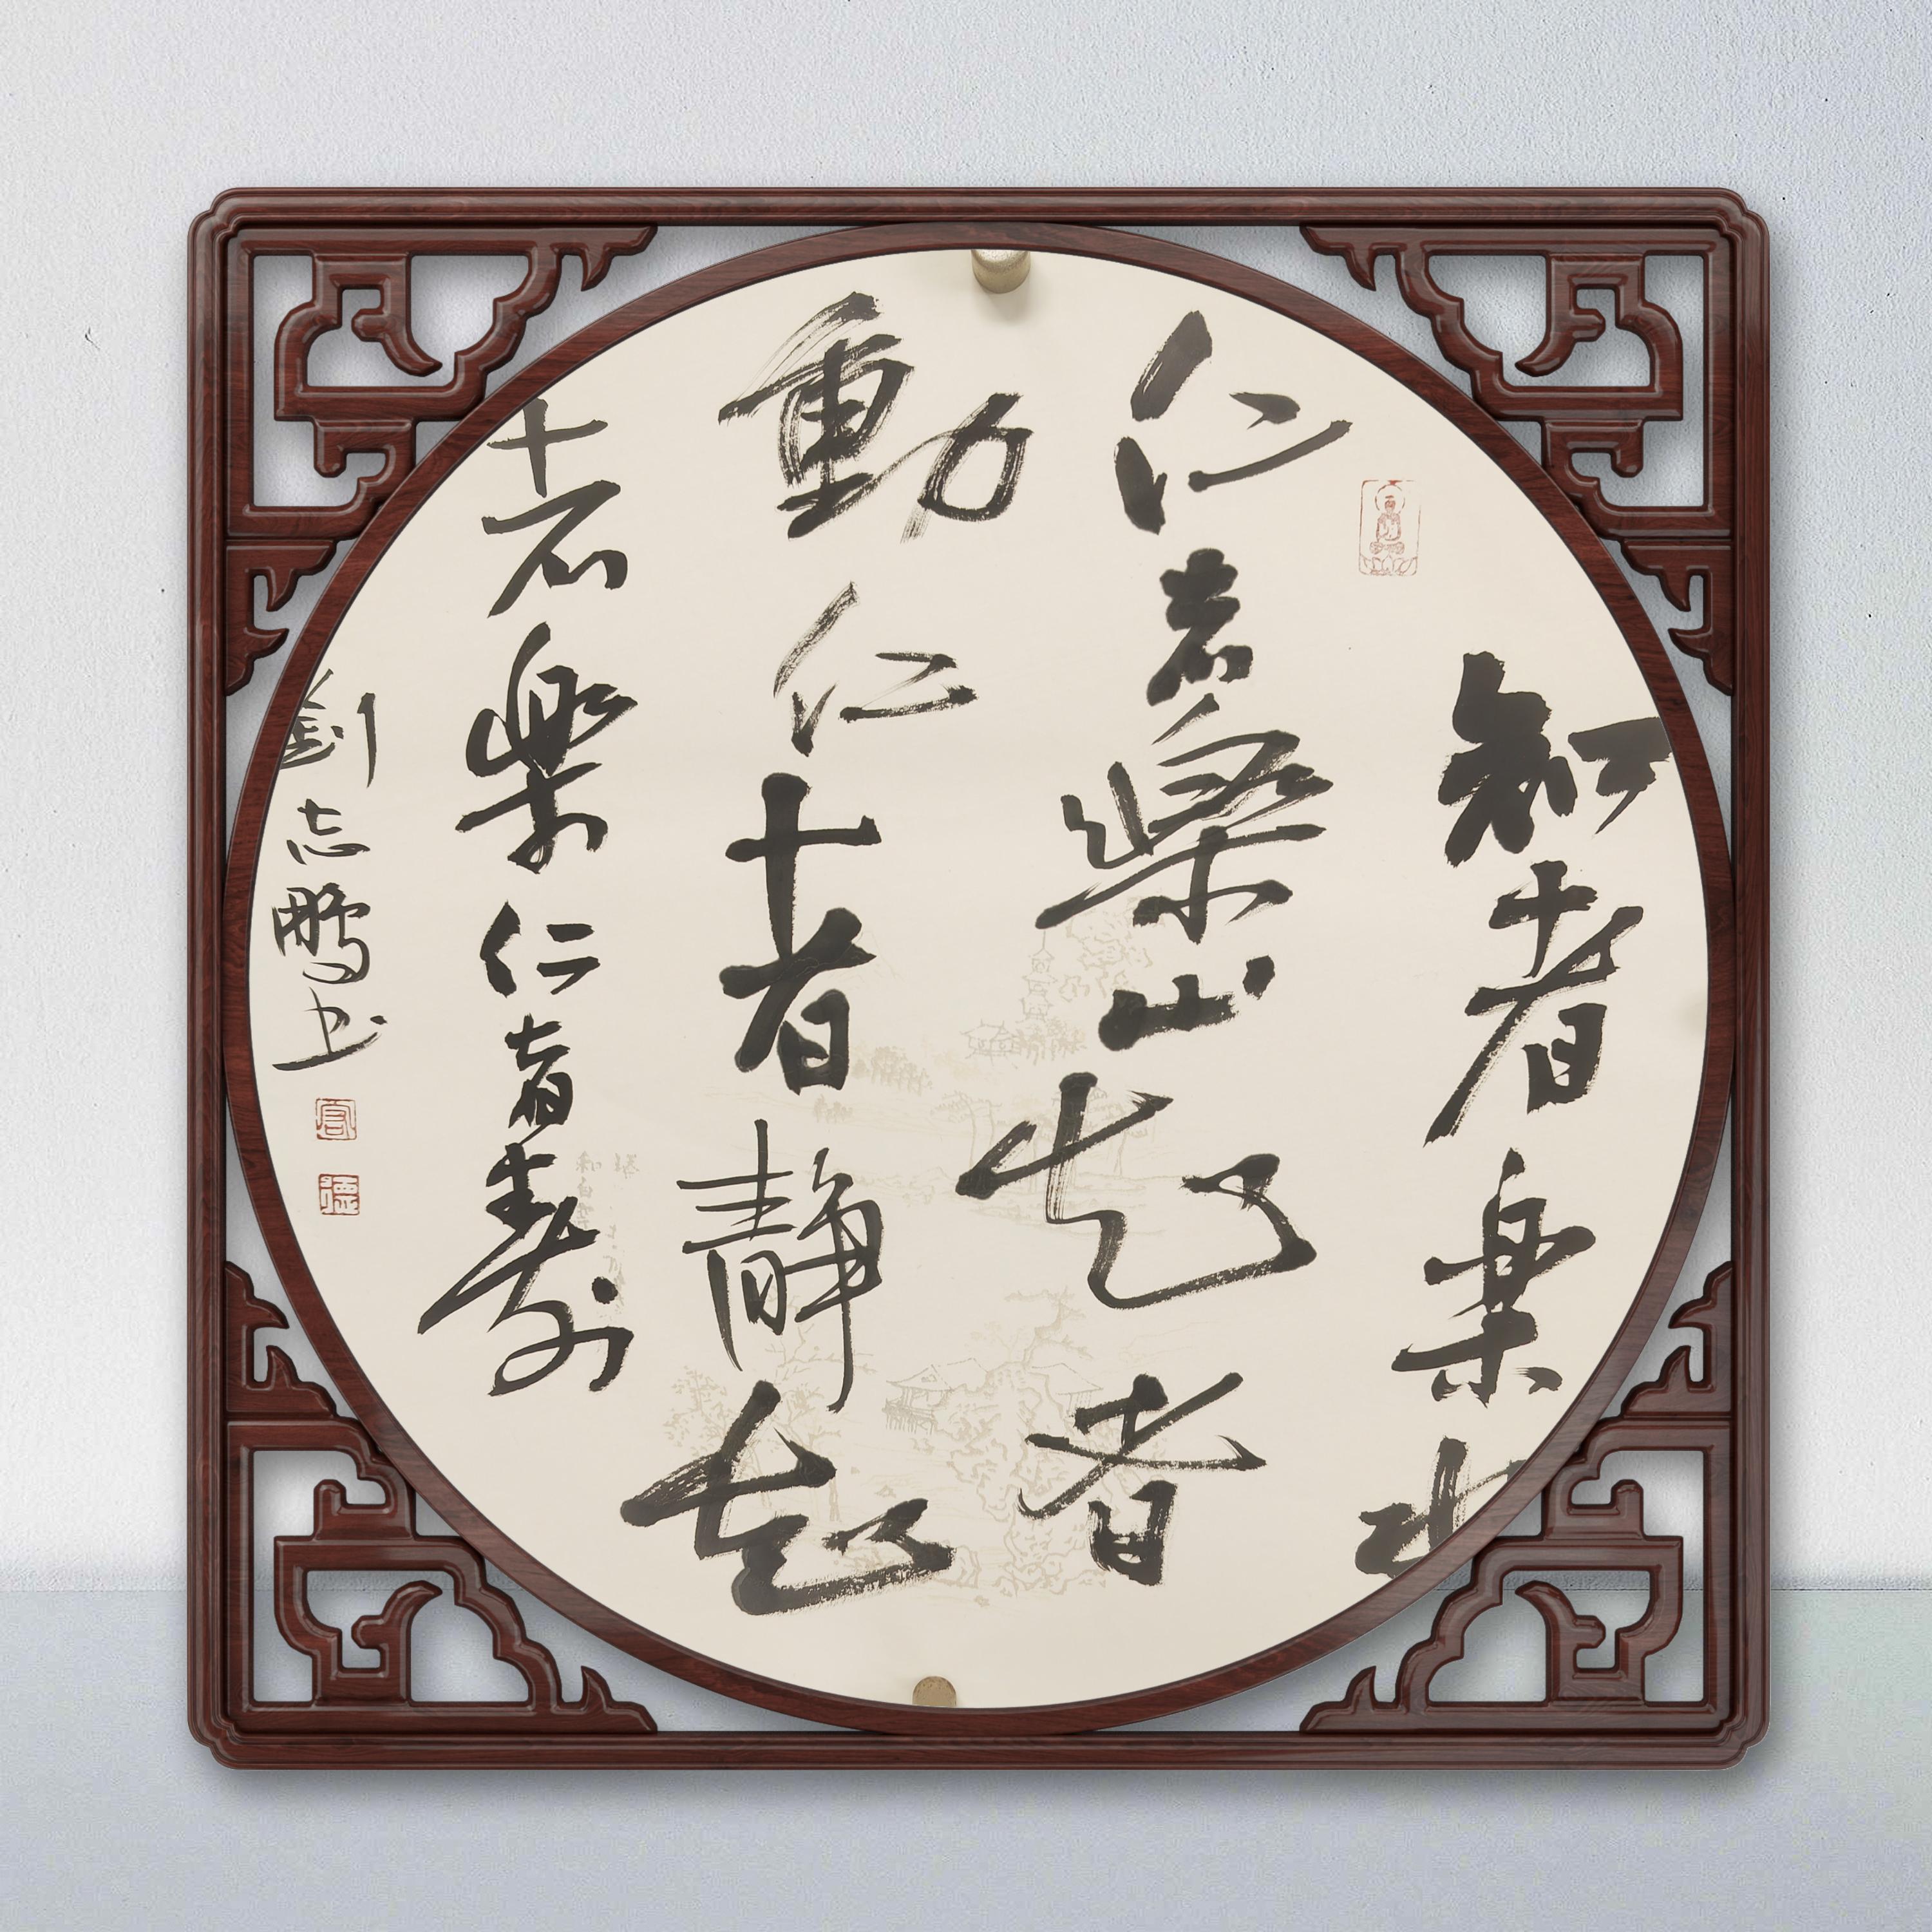 知者樂水
仁者樂山知者
動仁者靜知
者樂仁者壽
劉志鵬书